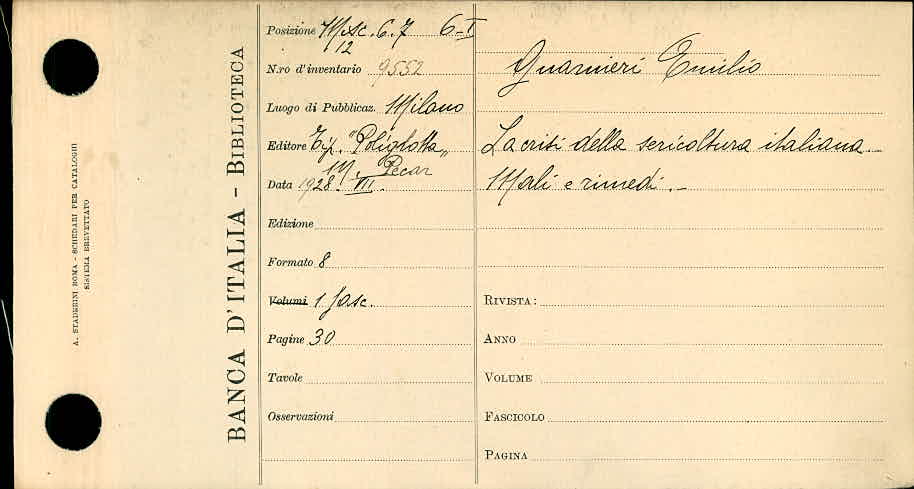 A. STADERINI ROMA - SCHEDARI PER CATALOGHI
SISTEMA BREVETTATO
BANCA D'ITALIA - BIBLIOTECA
Posizione Misc. 6.7 6-I
12
N.ro d'inventario 9552
Luogo di Pubblicaz. Milano
Editore Tip. "Poliglotta"
M. Pecar
Data 1928. VII.
Edizione
Formato 8
Volumi 1 fasc.
Pagine 30
Tavole
Osservazioni
Guarnieri Emilio
La crisi della sericoltura italiana.
Mali e rimedi. -
RIVISTA:
ANNO
VOLUME
FASCICOLO
PAGINA